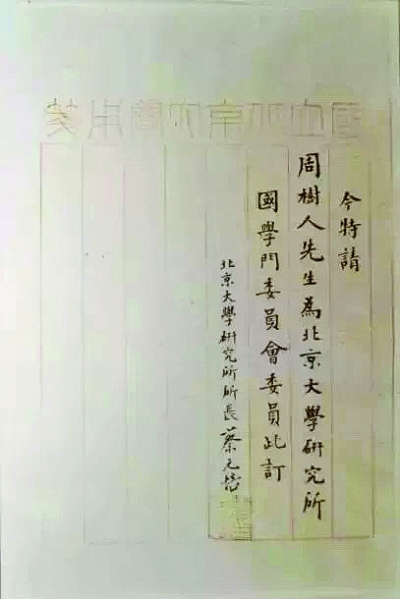 國立北京大學用箋
今特請
周樹人先生為北京大學研究所
國學門委員會委員此訂
北京大學研究所所長蔡元培